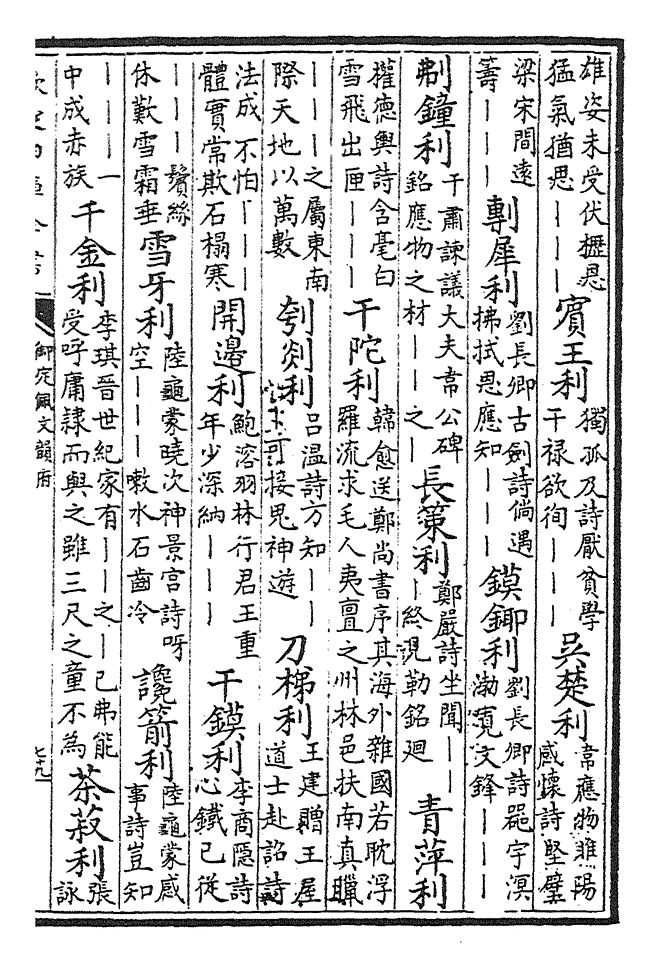 雄姿未受伏櫪恩
猛氣猶思｜｜｜
賓王利
獨孤及詩厭貧學
干禄欲徇｜｜｜
吴楚利
韋應物睢陽
感懷詩堅壁
梁宋間遠
籌｜｜｜
剸犀利
劉長卿古劍詩倘遇
拂拭恩應知｜｜｜
鏌鎁利
劉長卿詩器宇溟
渤寛文鋒｜｜｜
刜鐘利
于肅諫議大夫韋公碑
銘應物之材｜｜之｜
長策利
鄭嚴詩坐聞｜｜
｜終覬勒銘廻
青萍利
權德輿詩含毫白
雪飛出匣｜｜｜
干陀利
韓愈送鄭尚書序其海外雜國若耽浮
羅流求毛人夷亶之州林邑扶南真臘
｜｜｜｜之屬東南
際天地以萬數
刳剡利
吕温詩方知｜｜
｜可接思神遊
刀梯利
王建贈王屋
道士赴詔詩
法成不怕｜｜｜
體實常欺石榻寒
開邊利
鮑溶羽林行君王重
年少深納｜｜｜
干鏌利
李商隱詩
心鐵已從
｜｜｜鬢絲
休歎雪霜垂
雪牙利
陸龜蒙曉次神景宫詩呀
空｜｜｜嗽水石齒冷
讒箭利
陸龜蒙感
事詩豈知
｜｜｜一
中成赤族
千金利
李琪晉世紀家有｜｜之｜已弗能
受呼庸隷而與之雖三尺之童不為
茶菽利
張
詠
欽定四庫全書
御定佩文韻府